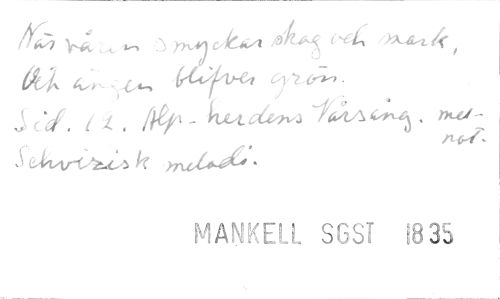 När våren smyckar skog och mark,
Och ängen blifver grön.
Sid. 12. Alp-herdens Vårsång. mel-
not.
Schvizisk melodi.
MANKELL SGST 1835